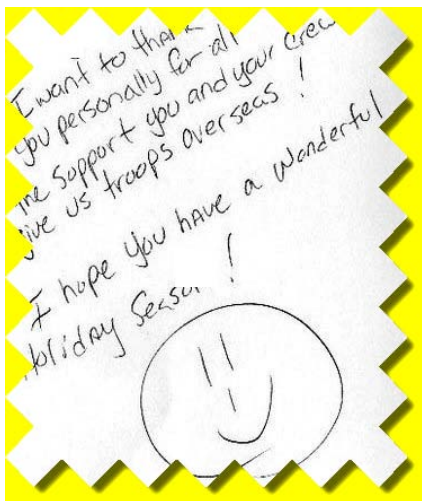 I want to thank
you personally for all
the support you and your crew
give us troops overseas !
I hope you have a wonderful
Holiday Season !